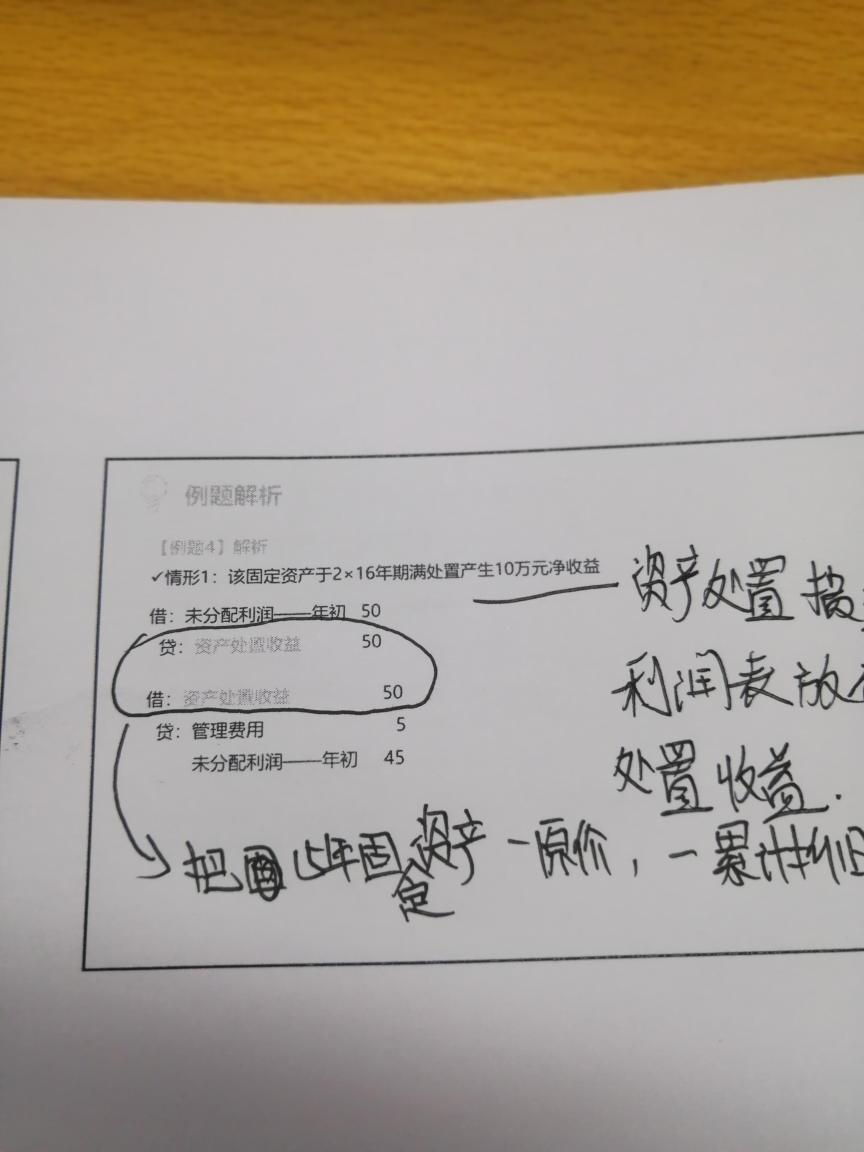 例题解析
【例题4】解析
✓情形1：该固定资产于2×16年期满处置产生10万元净收益
借：未分配利润——年初 50
贷：资产处置收益 50
借：资产处置收益 50
贷：管理费用 5
未分配利润——年初 45
资产处置损
利润表放在
处置收益.
把 15年固定资产-原价，-累计折旧